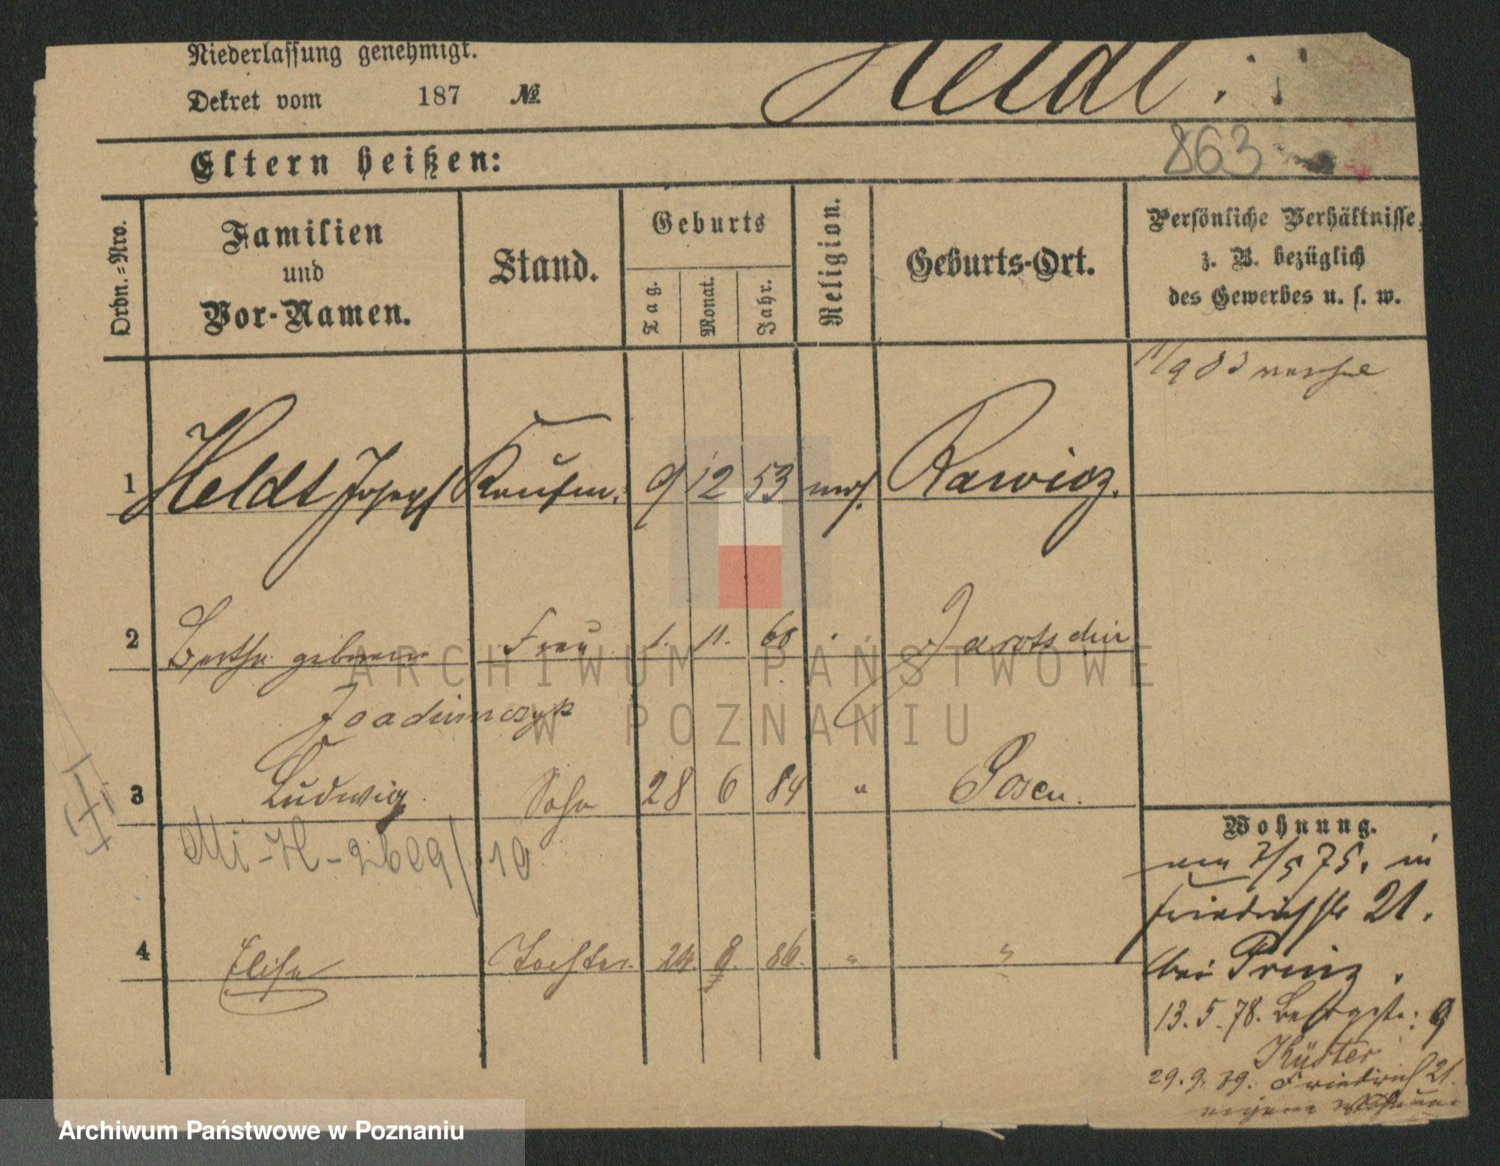 Niederlassung genehmigt.
Dekret vom 187 №
Heldt.
863
Eltern heißen:
Ordn.=Nro.
Familien und Vor-Namen.
Stand.
Geburts
Tag.
Monat.
Jahr.
Religion.
Geburts-Ort.
Persönliche Verhältnisse,
z. B. bezüglich
des Gewerbes u. s. w.
1 Heldt Joseph Kaufm. 9 12 53 mos. Rawicz.
2 Bertha geborene Frau 1. 11. Jarotschin
Joachimczyk
3 Ludwig Sohn 28 6 84 " Posen.
4 Elise Tochter 24. 8. 86. " "
Wohnung.
75. in
Friedrichstr 21.
bei Prinz.
13. 5. 78. 9
Küster
29. 9. 79. Friedrich 21.
ARCHIWUM PAŃSTWOWE
W POZNANIU
Archiwum Państwowe w Poznaniu